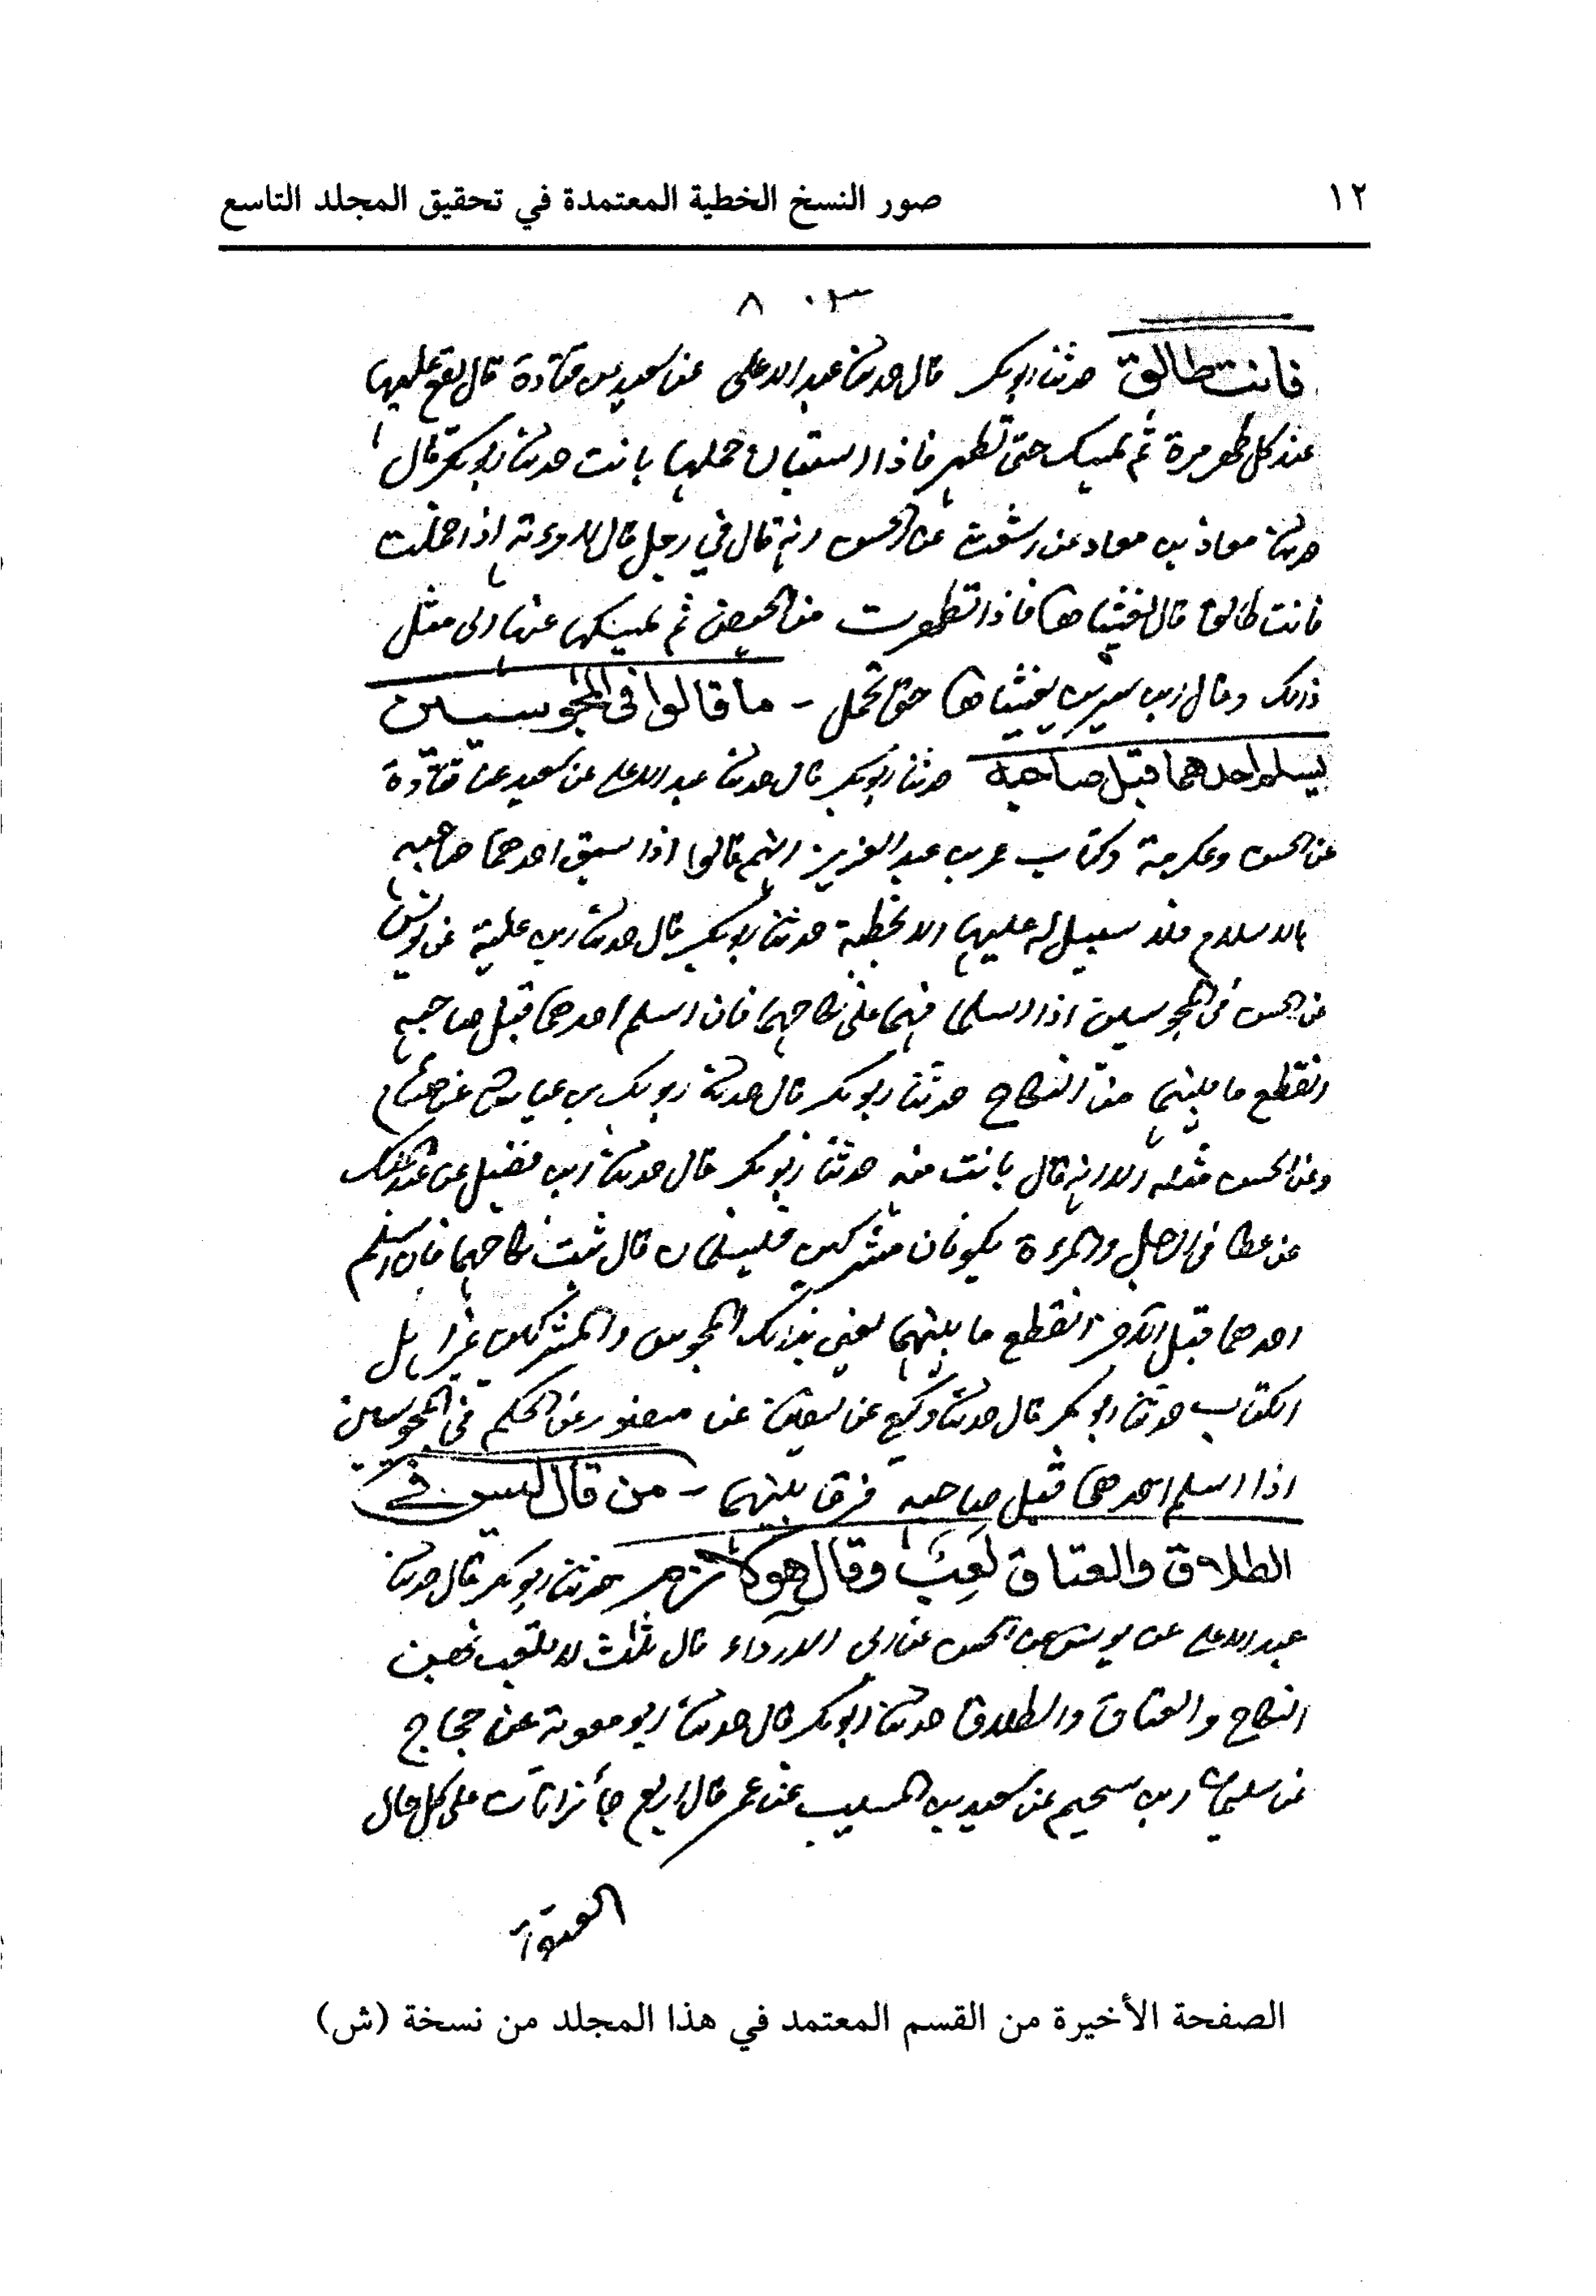 ١٢ صور النسخ الخطية المعتمدة في تحقيق المجلد التاسع
فانت طالق حدثنا ابو بكر قال حدثنا عبد الاعلى عن سعيد بن قتادة قال يقع عليها
عند كل طهر مرة ثم يمسك حتى تطهر فاذا استبان حملها بانت حدثنا ابو بكر قال
حدثنا معاذ بن معاد عن اشعث عن الحسن انه قال في رجل قال لامرءته اذا حملت
فانت طالق قال يغشاها فاذا تطهرت من الحيض ثم يمسكها عنها الى مثل
ذلك وقال ابن سيرين يغشاها حتى تحمل - ما قالوا في المجوسيين
يسلم احدهما قبل صاحبه حدثنا ابو بكر قال حدثنا عبد الاعلى عن سعيد عن قتادة
عن الحسن وعكرمة وكتاب عمر بن عبد العزيز انهم قالوا اذا سبق احدهما صاحبه
بالاسلام فلا سبيل له عليها الا بخطبة حدثنا ابو بكر قال حدثنا ابن علية عن يونس
عن الحسن في المجوسين اذا اسلما فهما على نكاحهما فان اسلم احدهما قبل صاحبه
انقطع ما بينهما من النكاح حدثنا ابو بكر قال حدثنا ابو بكر بن عياش عن هشام
وعن الحسن مثله الا انه قال بانت منه حدثنا ابو بكر قال حدثنا ابن فضيل عن عبد الملك
عن عطا في الرجل والمرءة يكونان مشركين فيسلمان قال ثبت نكاحهما فان اسلم
احدهما قبل الآخر انقطع ما بينهما يعني بذلك المجوس والمشركين غير اهل
الكتاب حدثنا ابو بكر قال حدثنا وكيع عن سفين عن منصور عن الحكم في المجوسين
اذا اسلم احدهما قبل صاحبه فرق بينهما - من قال ليس في
الطلاق والعتاق لعب وقال هو لازم حدثنا ابو بكر قال حدثنا
عبد الاعلى عن يونس عن الحسن عن ابى الدرداء قال ثلاث لا يلعب بهن
النكاح والعتاق والطلاق حدثنا ابو بكر قال حدثنا ابو معوية عن حجاج
عن سليمان ابن سحيم عن سعيد بن المسيب عن عمر قال اربع جائزات على كل حال
الصفحة الأخيرة من القسم المعتمد في هذا المجلد من نسخة (ش)